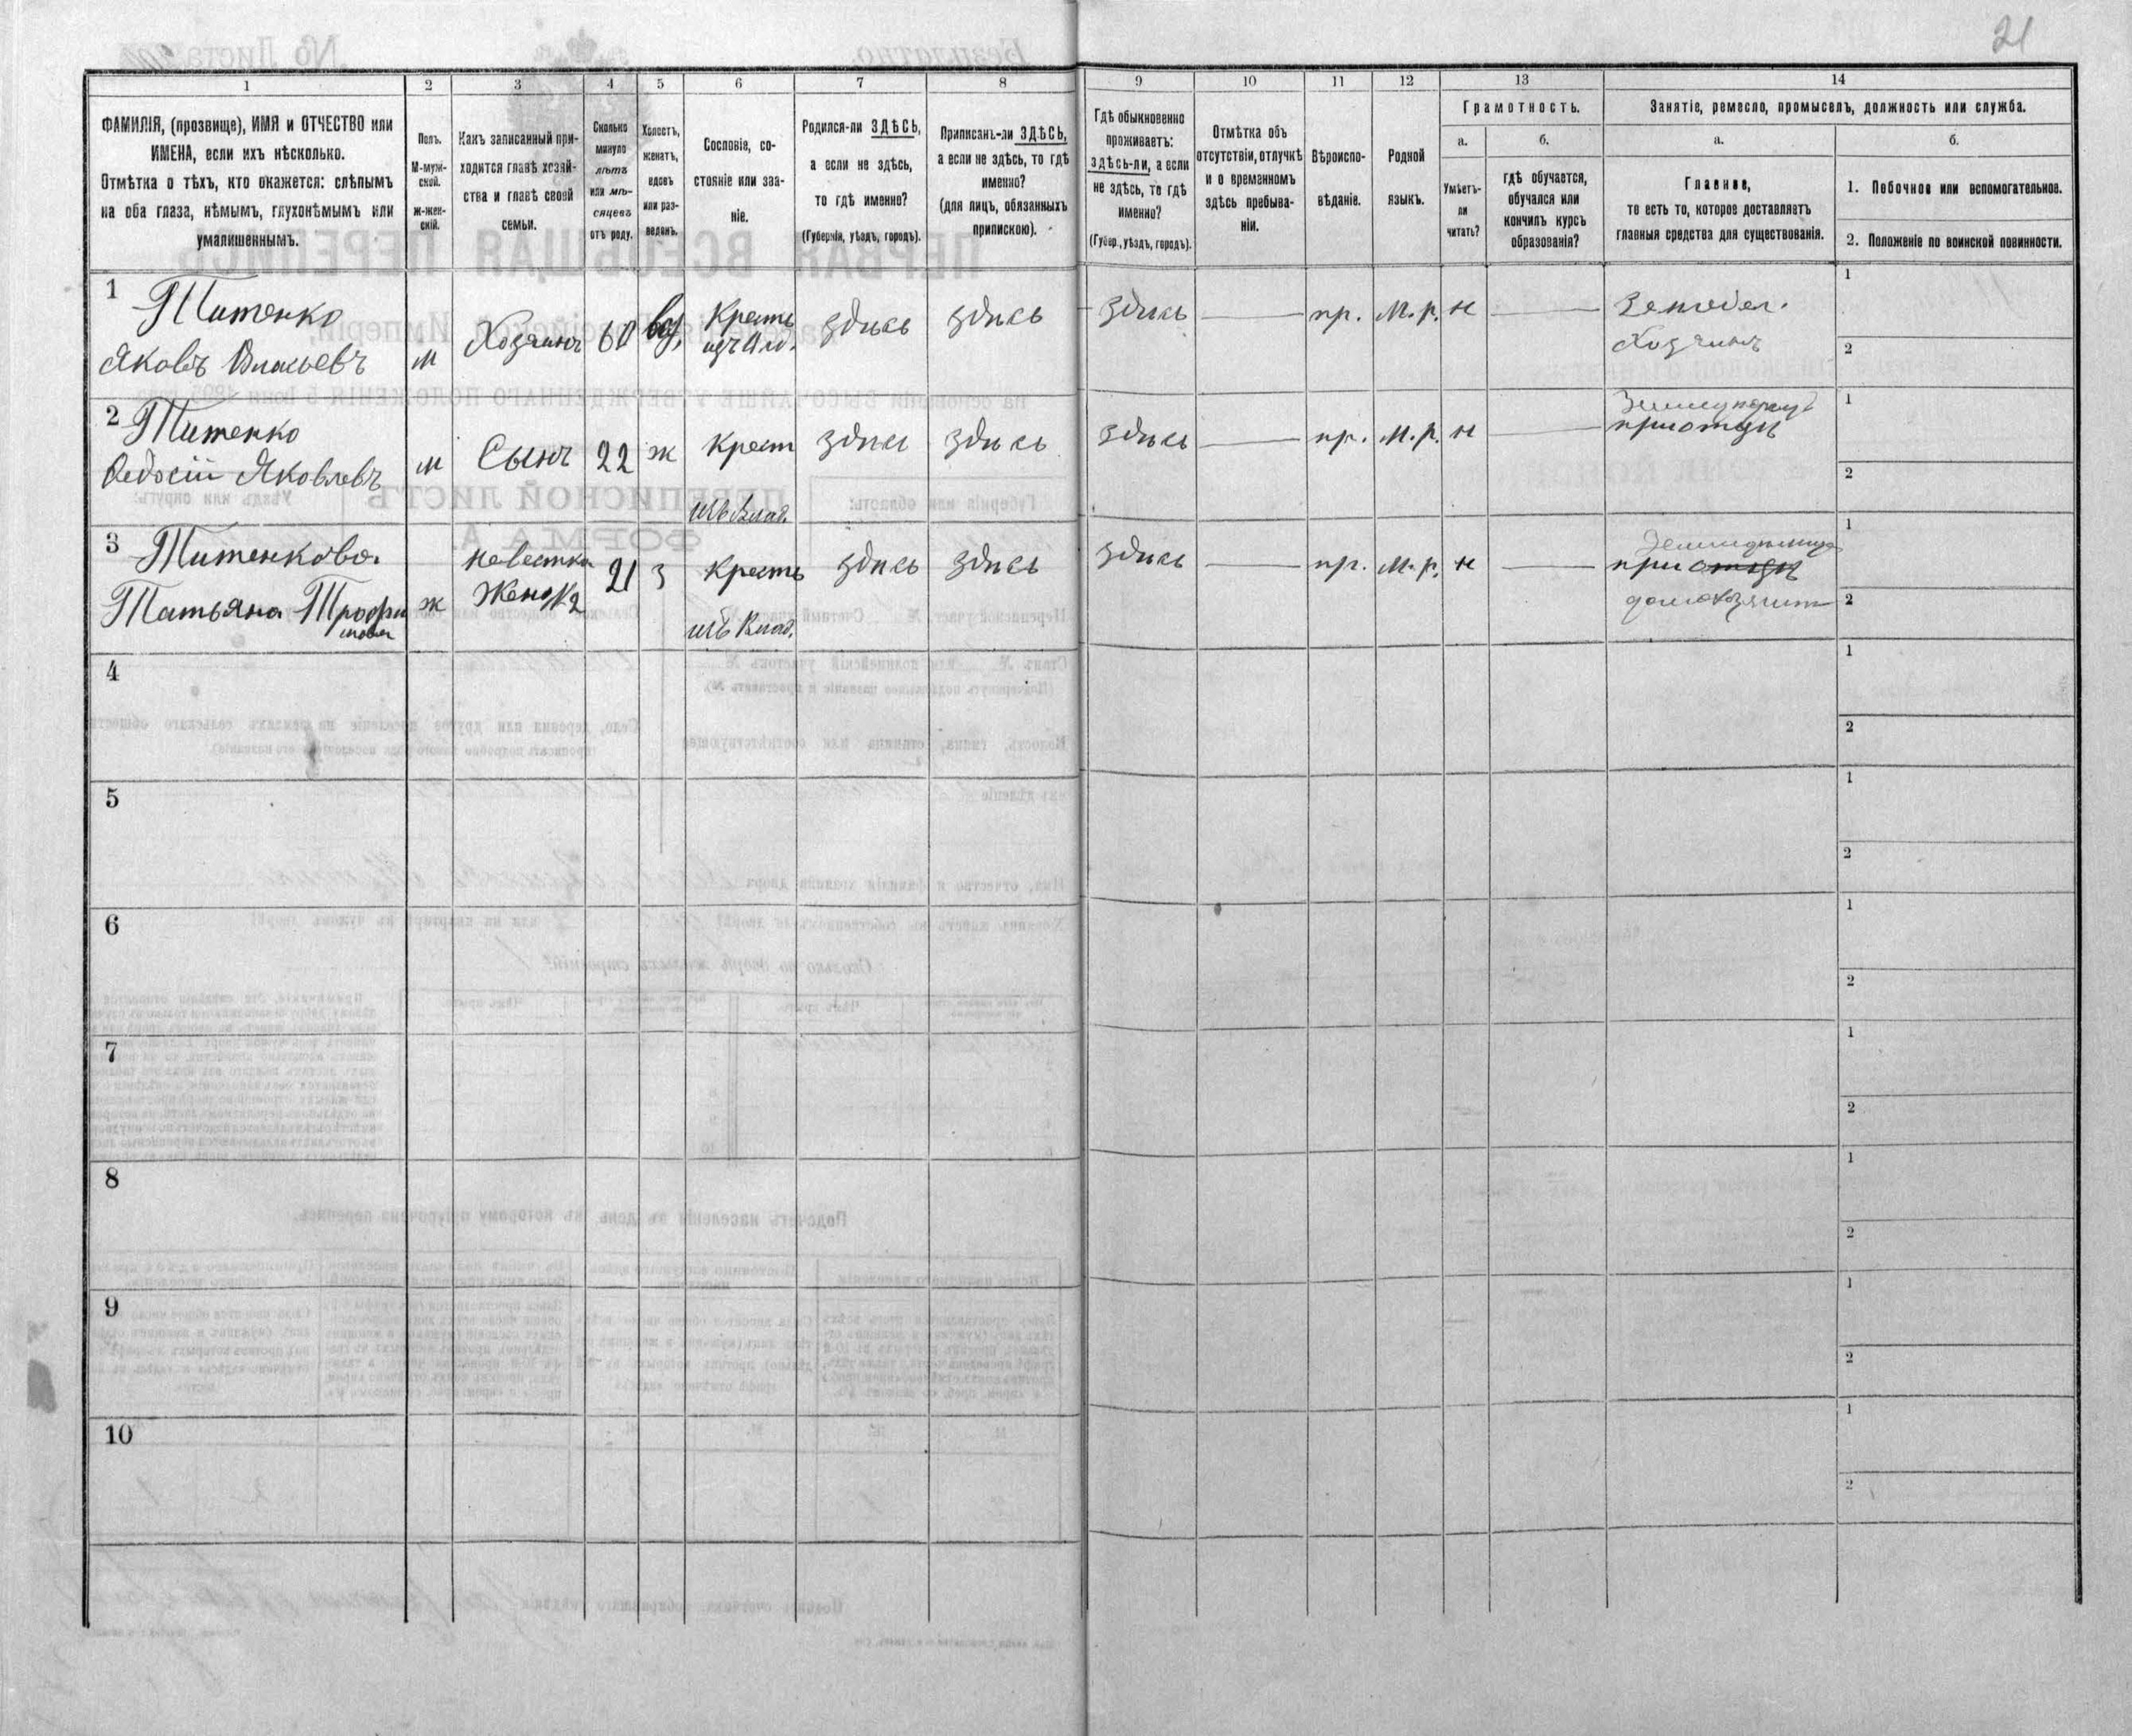 21
1
2
3
4
5
6
7
8
9
10
11
12
13
14
ФАМИЛІЯ, (прозвище), ИМЯ и ОТЧЕСТВО или
ИМЕНА, если ихъ нѣсколько.
Отмѣтка о тѣхъ, кто окажется: слѣпымъ
на оба глаза, нѣмымъ, глухонѣмымъ или
умалишеннымъ.
Полъ.
М-муж-
ской.
ж-жен-
скій.
Какъ записанный при-
ходится главѣ хозяй-
ства и главѣ своей
семьи.
Сколько
минуло
лѣтъ
или мѣ-
сяцевъ
отъ роду.
Холостъ,
женатъ,
вдовъ
или раз-
веденъ.
Сословіе, со-
стояніе или зва-
ніе.
Родился-ли ЗДѢСЬ,
а если не здѣсь,
то гдѣ именно?
(Губернія, уѣздъ, городъ).
Приписанъ-ли ЗДѢСЬ,
а если не здѣсь, то гдѣ
именно?
(для лицъ, обязанныхъ
припискою).
Гдѣ обыкновенно
проживаетъ:
здѣсь-ли, а если
не здѣсь, то гдѣ
именно?
(Губер., уѣздъ, городъ).
Отмѣтка объ
отсутствіи, отлучкѣ
и о временномъ
здѣсь пребыва-
ніи.
Вѣроиспо-
вѣданіе.
Родной
языкъ.
Грамотность.
а.
б.
Умѣетъ-
ли
читать?
гдѣ обучается,
обучался или
кончилъ курсъ
образованія?
Занятіе, ремесло, промыселъ, должность или служба.
а.
б.
Главное,
то есть то, которое доставляетъ
главныя средства для существованія.
1. Побочное или вспомогательное.
2. Положеніе по воинской повинности.
1 Титенко
Яковъ Власьевъ
м
Хозяинъ
60
вд.
Крестъ
здѣсь
здѣсь
здѣсь
пр.
М. р.
н
Земледел.
Хозяинъ
1
2
2 Титенко
Ѳедосій Яковлевъ
м
Сынъ
22
ж
Крест
изъ Влад.
здѣсь
здѣсь
здѣсь
пр.
М. р.
н
при отцѣ
1
2
3 Титенкова
Татьяна Трофи
мова
ж
невестка
Жена №2
21
з
Крестъ
изъ Влад.
здѣсь
здѣсь
здѣсь
пр.
М. р.
н
при отцѣ
1
2
4
1
2
5
1
2
6
1
2
7
1
2
8
1
2
9
1
2
10
1
2